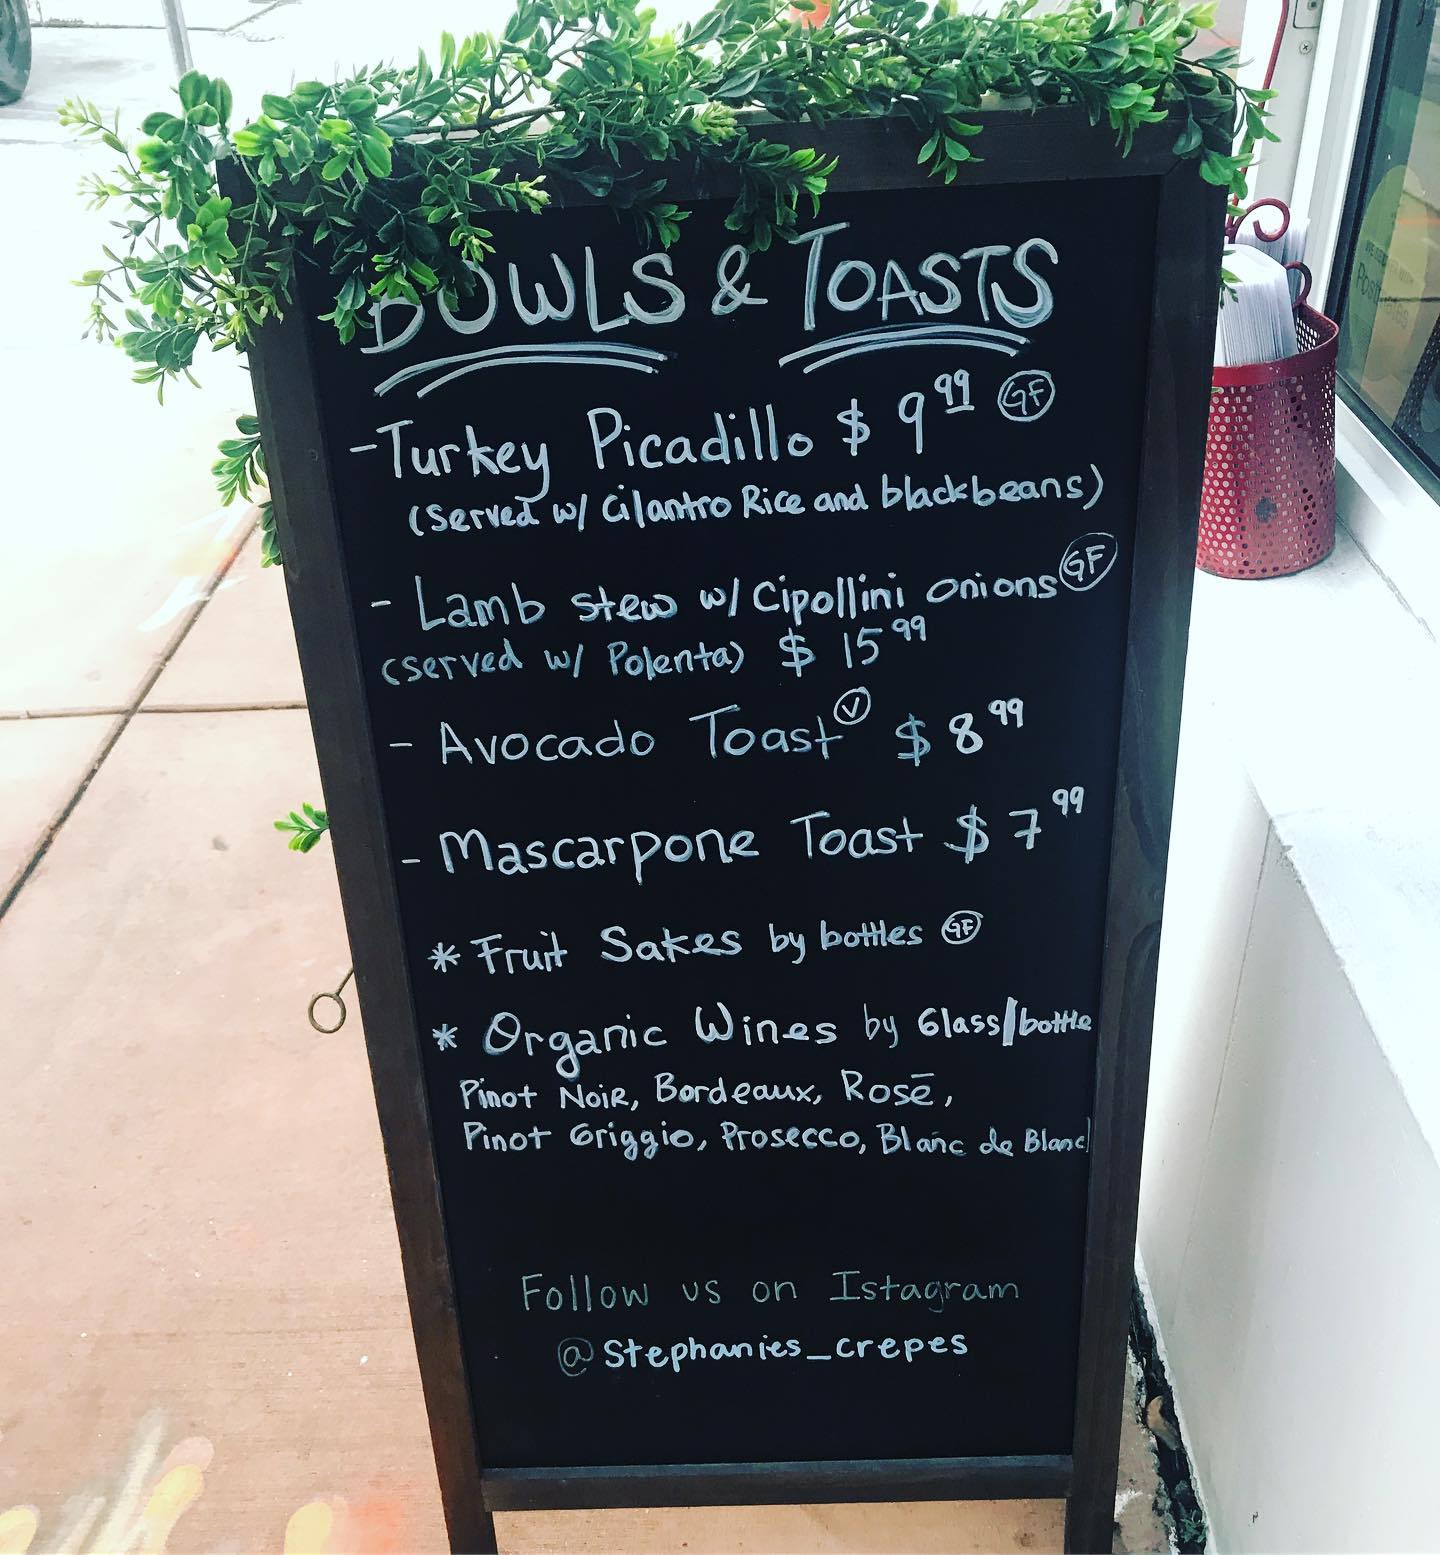 BOWLS & TOASTS
- Turkey Picadillo $ 9 99 GF
(served w/ Cilantro Rice and blackbeans)
- Lamb stew w/ Cipollini onions GF
(served w/ Polenta) $ 15 99
- Avocado Toast V $ 8 99
- Mascarpone Toast $ 7 99
* Fruit Sakes by bottles GF
* Organic Wines by Glass/bottle
Pinot Noir, Bordeaux, Rosē,
Pinot Griggio, Prosecco, Blanc de Blanc
Follow us on Istagram
@Stephanies_crepes